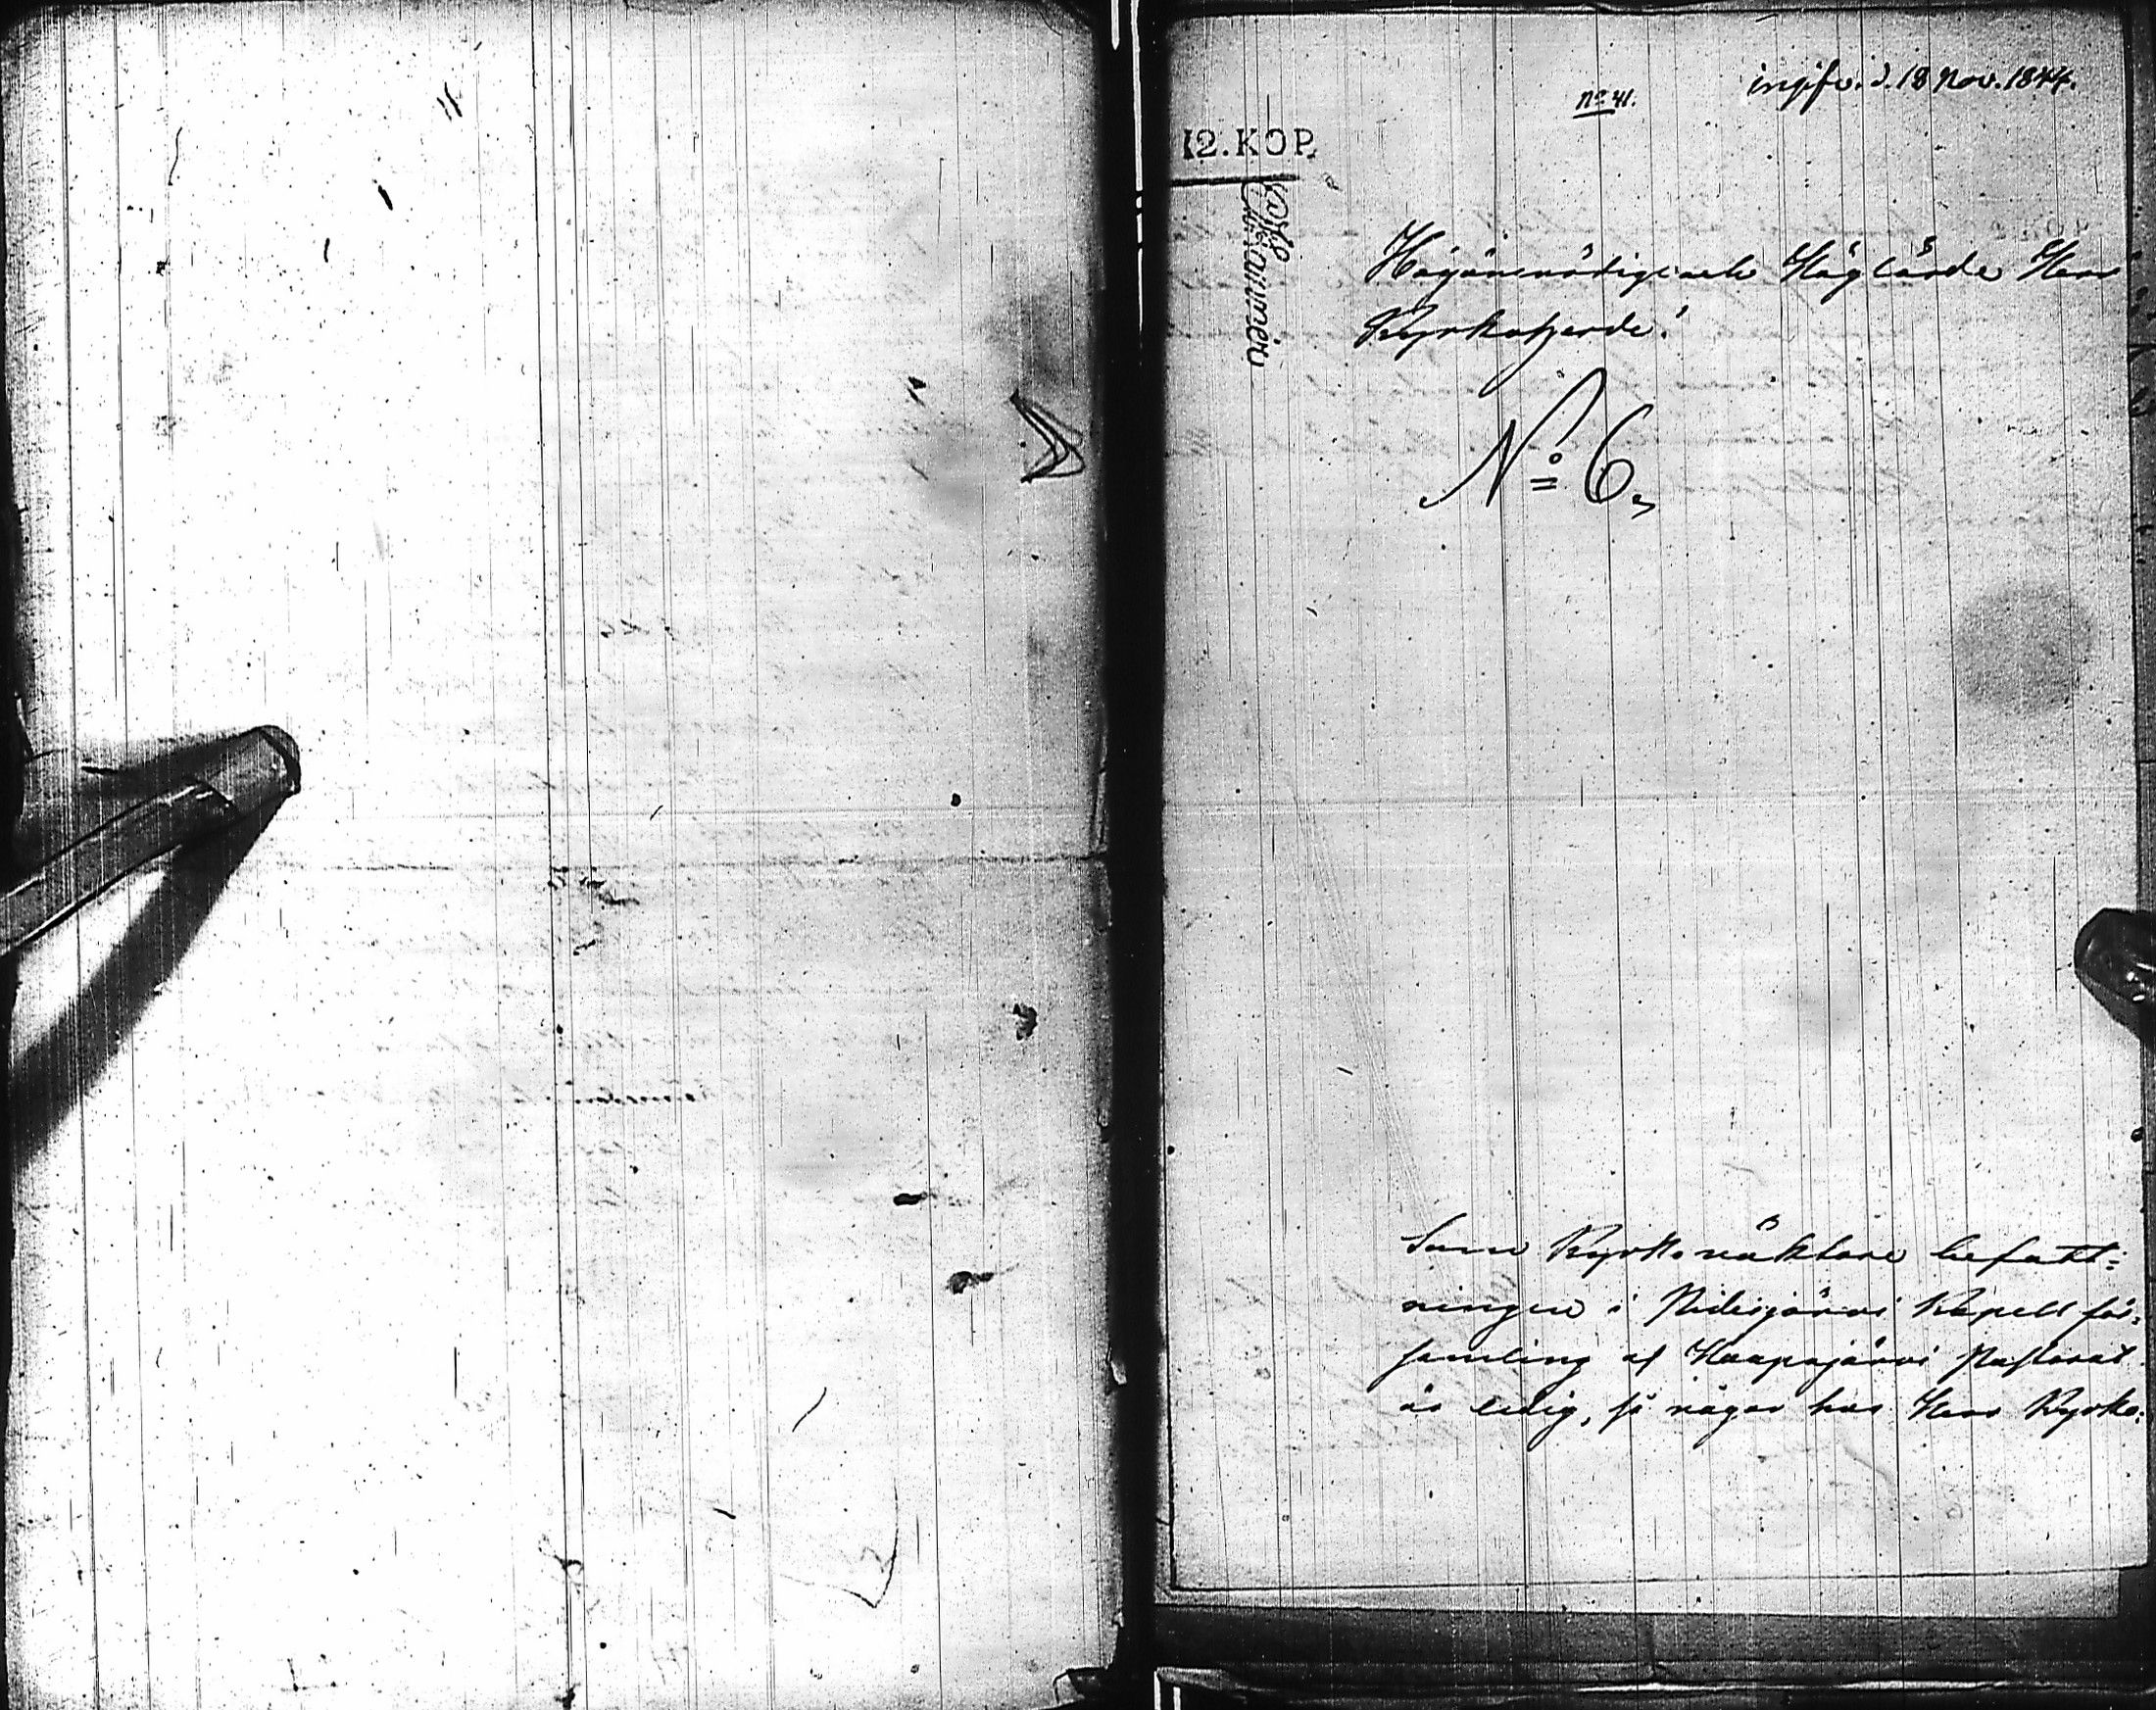 No 41.
ingifv. d. 18 Nov. 1844.
12. KOP.
Högärevördige och Höglärde Herr
Kyrkoherde!
No 6.
Som Kyrkovaktare befatt-
ningen i Pidisjärvi Kapell för-
samling af Haapajärvi Pastorat
är ledig, så vågar hos Herr Kyrko-